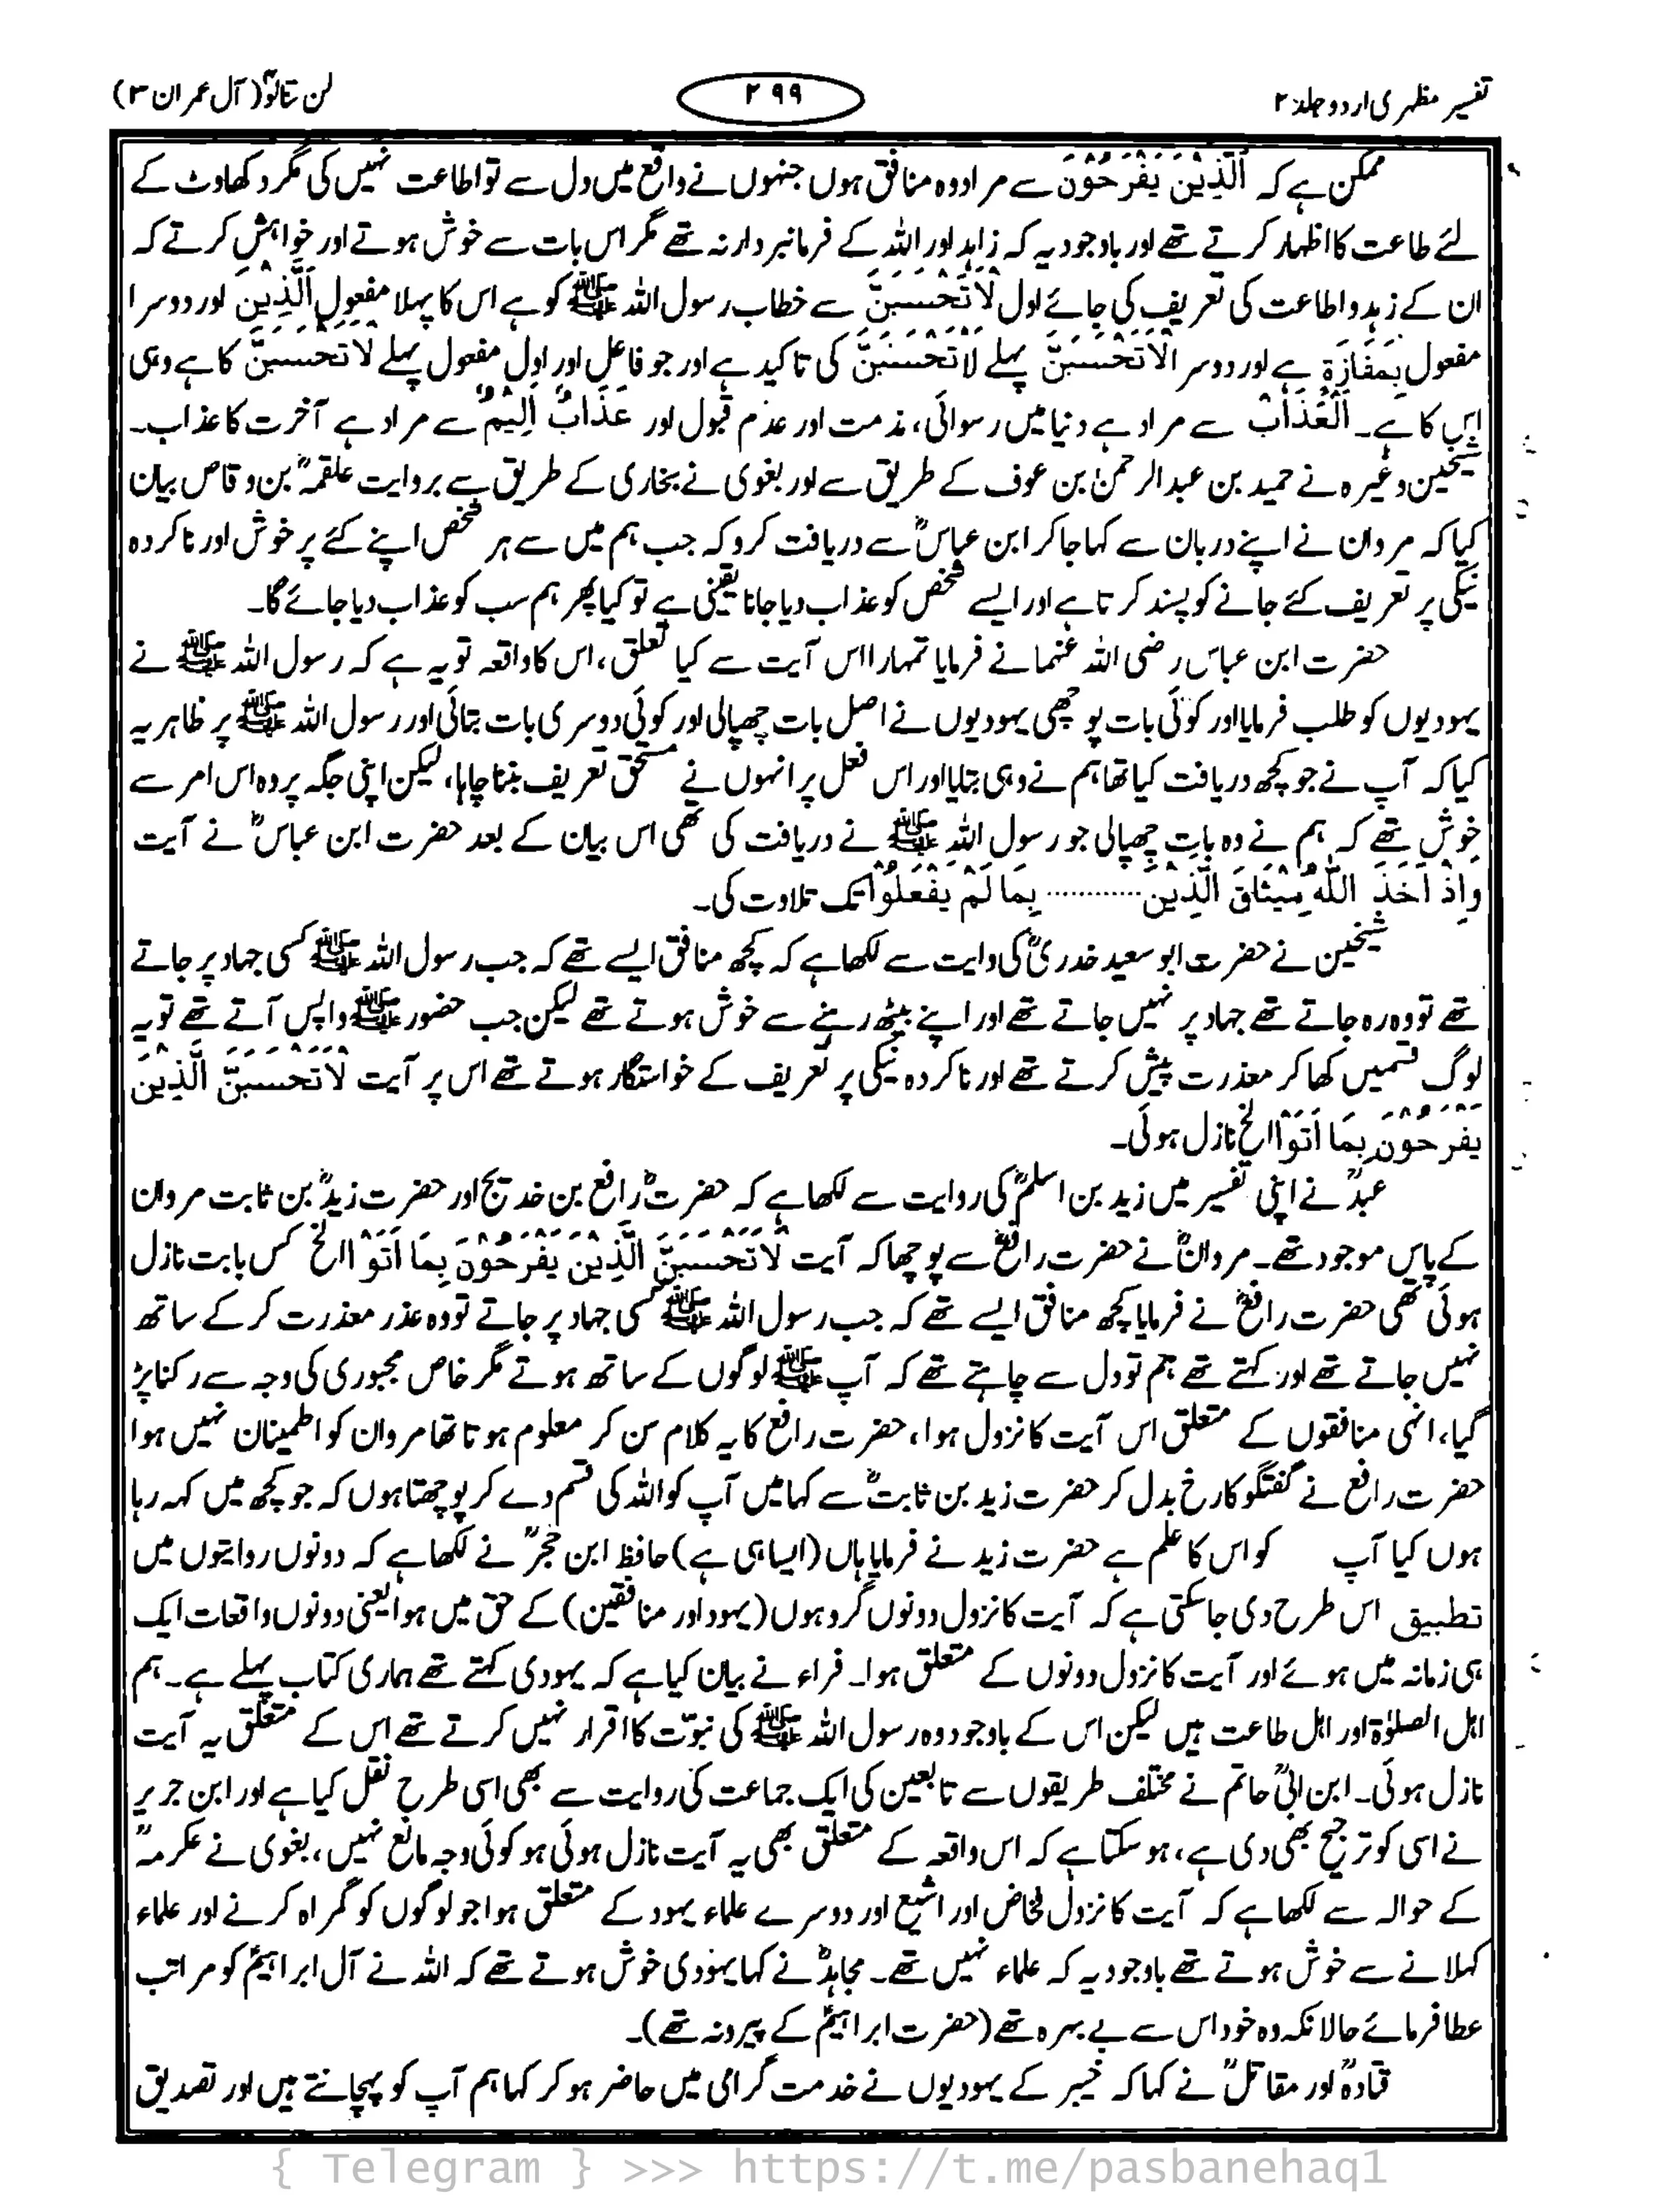 تفسیر مظہری اردو جلد ۲
۲۹۹
لن تنالوا (آل عمران ۳)
ممکن ہے کہ اَلَّذِیْنَ یَفْرَحُوْنَ سے مراد وہ منافق ہوں جنہوں نے واقع میں دل سے تو اطاعت نہیں کی مگر دکھاوٹ کے
لئے طاعت کا اظہار کرتے تھے اور باوجود یہ کہ زاہد اور اللہ کے فرمانبردار نہ تھے مگر اس بات سے خوش ہوتے اور خواہش کرتے کہ
ان کے زہد و اطاعت کی تعریف کی جائے اول لَاتَحْسَبَنَّ سے خطاب رسول اللہ ﷺ کو ہے اس کا پہلا مفعول اَلَّذِیْنَ اور دوسرا
مفعول بِمَفَازَةٍ ہے اور دوسرا لَاتَحْسَبَنَّ پہلے لَاتَحْسَبَنَّ کی تاکید ہے اور جو فاعل اور اول مفعول پہلے لَاتَحْسَبَنَّ کا ہے وہی
اس کا ہے۔ اَلْعَذَابْ سے مراد ہے دنیا میں رسوائی، مذمت اور عدم قبول اور عَذَابٌ اَلِیْمٌ سے مراد ہے آخرت کا عذاب۔
شیخین وغیرہ نے حمید بن عبدالرحمٰن بن عوف کے طریق سے اور بغوی نے بخاری کے طریق سے بروایت علقمہؒ بن وقاص بیان
کیا کہ مروان نے اپنے دربان سے کہا جاکر ابن عباسؓ سے دریافت کرو کہ جب ہم میں سے ہر شخص اپنے کئے پر خوش اور ناکردہ
نیکی پر تعریف کئے جانے کو پسند کرتا ہے اور ایسے شخص کو عذاب دیا جانا یقینی ہے تو کیا پھر ہم سب کو عذاب دیا جائے گا۔
حضرت ابن عباس رضی اللہ عنہما نے فرمایا تمہارا اس آیت سے کیا تعلق، اس کا واقعہ تو یہ ہے کہ رسول اللہ ﷺ نے
یہودیوں کو طلب فرمایا اور کوئی بات پوچھی یہودیوں نے اصل بات چھپالی اور کوئی دوسری بات بتائی اور رسول اللہ ﷺ پر ظاہر یہ
کیا کہ آپ نے جو کچھ دریافت کیا تھا ہم نے وہی بتلایا اور اس فعل پر انہوں نے مستحق تعریف بننا چاہا، لیکن اپنی جگہ پر وہ اس امر سے
خوش تھے کہ ہم نے وہ بات چھپالی جو رسول اللہ ﷺ نے دریافت کی تھی اس بیان کے بعد حضرت ابن عباسؓ نے آیت
وَاِذْ اَخَذَ اللّٰهُ مِیْثَاقَ الَّذِیْنَ............ بِمَا لَمْ یَفْعَلُوْا تک تلاوت کی۔
شیخین نے حضرت ابوسعید خدریؓ کی وایت سے لکھا ہے کہ کچھ منافق ایسے تھے کہ جب رسول اللہ ﷺ کسی جہاد پر جاتے
تھے تو وہ رہ جاتے تھے جہاد پر نہیں جاتے تھے اور اپنے بیٹھ رہنے سے خوش ہوتے تھے لیکن جب حضور ﷺ واپس آتے تھے تو یہ
لوگ قسمیں کھا کر معذرت پیش کرتے تھے اور ناکردہ نیکی پر تعریف کے خواستگار ہوتے تھے اس پر آیت لَاتَحْسَبَنَّ الَّذِیْنَ
یَفْرَحُوْنَ بِمَا اَتَوْا الخ نازل ہوئی۔
عبدؒ نے اپنی تفسیر میں زید بن اسلمؒ کی روایت سے لکھا ہے کہ حضرتؓ رافع بن خدیج اور حضرت زیدؓ بن ثابت مروان
کے پاس موجود تھے۔ مروانؒ نے حضرت رافعؓ سے پوچھا کہ آیت لَاتَحْسَبَنَّ الَّذِیْنَ یَفْرَحُوْنَ بِمَا اَتَوْا الخ کس بابت نازل
ہوئی تھی حضرت رافعؓ نے فرمایا کچھ منافق ایسے تھے کہ جب رسول اللہ ﷺ کسی جہاد پر جاتے تو وہ عذر معذرت کرکے ساتھ
نہیں جاتے تھے اور کہتے تھے ہم تو دل سے چاہتے تھے کہ آپ ﷺ لوگوں کے ساتھ ہوتے مگر خاص مجبوری کی وجہ سے رکنا پڑ
گیا، انہی منافقوں کے متعلق اس آیت کا نزول ہوا، حضرت رافع کا یہ کلام سن کر معلوم ہوتا تھا مروان کو اطمینان نہیں ہوا
حضرت رافع نے گفتگو کا رخ بدل کر حضرت زید بن ثابتؓ سے کہا میں آپ کو اللہ کی قسم دے کر پوچھتا ہوں کہ جو کچھ میں کہہ رہا
ہوں کیا آپ کو اس کا علم ہے حضرت زید نے فرمایا ہاں (ایسا ہی ہے) حافظ ابن حجرؒ نے لکھا ہے کہ دونوں روایتوں میں
تطبیق اس طرح دی جاسکتی ہے کہ آیت کا نزول دونوں گروہوں (یہود اور منافقین) کے حق میں ہوا یعنی دونوں واقعات ایک
ہی زمانہ میں ہوئے اور آیت کا نزول دونوں کے متعلق ہوا۔ فراء نے بیان کیا ہے کہ یہودی کہتے تھے ہماری کتاب پہلے ہے۔ ہم
اہل الصلوٰۃ اور اہل طاعت ہیں لیکن اس کے باوجود وہ رسول اللہ ﷺ کی نبوّت کا اقرار نہیں کرتے تھے اس کے متعلق یہ آیت
نازل ہوئی۔ ابن ابیؒ حاتم نے مختلف طریقوں سے تابعین کی ایک جماعت کی روایت سے بھی اسی طرح نقل کیا ہے اور ابن جریر
نے اسی کو ترجیح بھی دی ہے، ہوسکتا ہے کہ اس واقعہ کے متعلق بھی یہ آیت نازل ہوئی ہو کوئی وجہ مانع نہیں، بغوی نے عکرمہؒ
کے حوالہ سے لکھا ہے کہ آیت کا نزول فخاض اور اشیع اور دوسرے علماء یہود کے متعلق ہوا جو لوگوں کو گمراہ کرنے اور علماء
کہلانے سے خوش ہوتے تھے باوجود یہ کہ علماء نہیں تھے۔ مجاہدؒ نے کہا یہودی خوش ہوتے تھے کہ اللہ نے آل ابراہیمؑ کو مراتب
عطا فرمائے حالانکہ وہ خود اس سے بے بہرہ تھے (حضرت ابراہیمؑ کے پیرو نہ تھے)۔
قتادہؒ اور مقاتلؒ نے کہا کہ خیبر کے یہودیوں نے خدمت گرامی میں حاضر ہو کر کہا ہم آپ کو پہچانتے ہیں اور تصدیق
{ Telegram } >>> https://t.me/pasbanehaq1